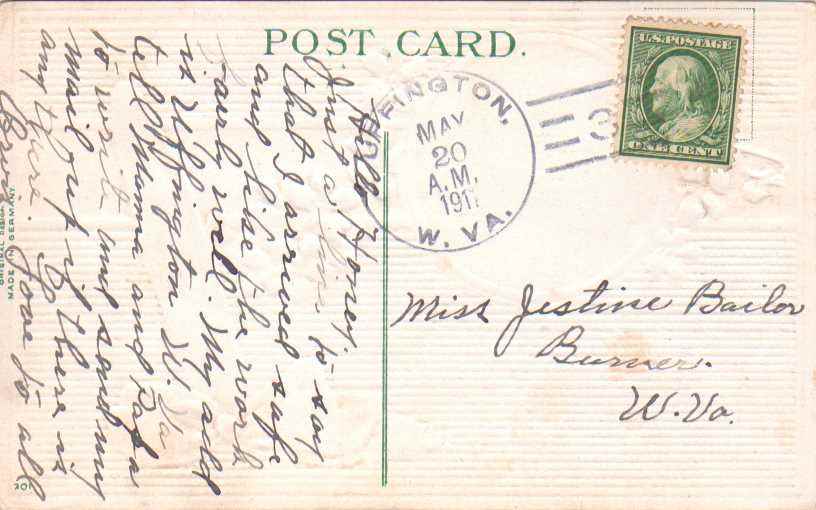 POST CARD.
UFFINGTON,
MAY
20
A.M.
191
W. VA.
3
U.S. POSTAGE
ONE CENT
Hello Honey.
Just a line to say
that I arrived safe
and like the work
fairly well. My add
is Uffington W. Va
tell Mama and Papa
to write and send my
mail out if there is
any here. Love to all
Miss Jestine Bailor
Burner.
W. Va.
ORIGINAL DESIGN
MADE IN GERMANY
201